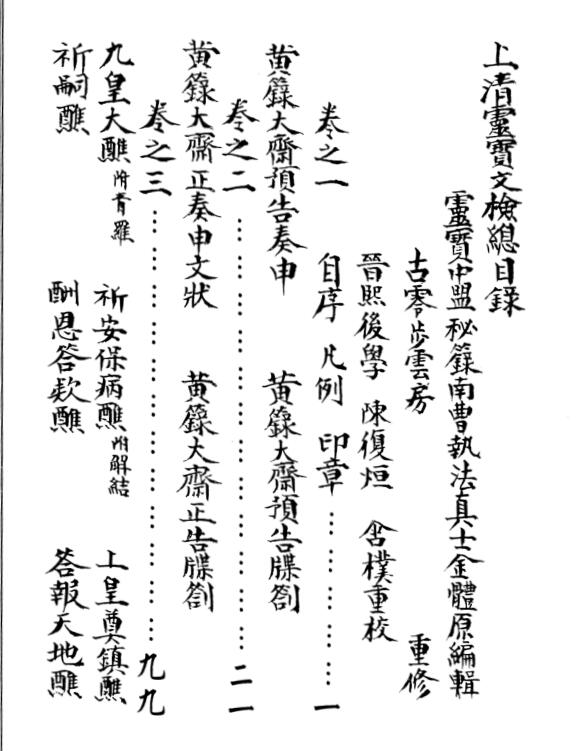 上清靈寶文檢總目錄
靈寶中盟秘籙南曹執法真士金體原編輯
古零步雲房　重修
晉熙後學　陳復烜　含樸重校
自序　凡例　印章……………一
卷之一
黃籙大齋預告奏申　黃籙大齋預告牒劄
卷之二……………………………………二一
黃籙大齋正奏申文狀　黃籙大齋正告牒劄
卷之三……………………………………九九
九皇大醮附青羅　祈安保病醮附解結　上皇奠鎮醮
祈嗣醮　酬恩答欵醮　答報天地醮